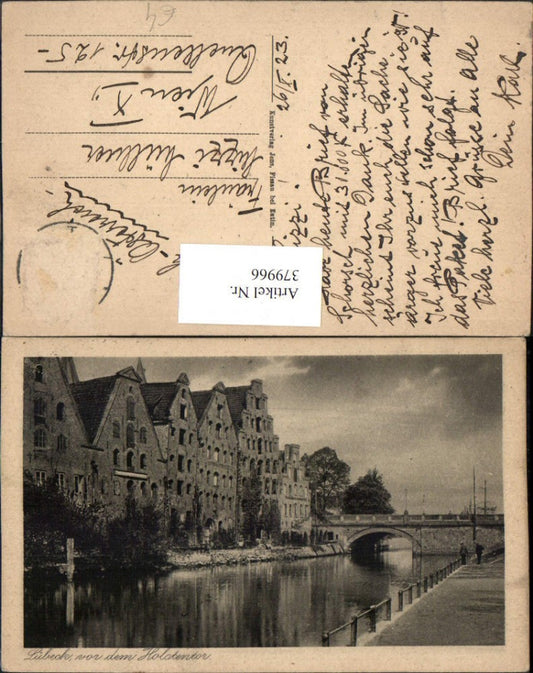 €4
26/I. 23.
Mizzi!
Habe heute Brief von
Schorsch mit 31.500 K erhalten
herzlichen Dank im übrigen
scheint Ihr euch die Sache
ärger vorzustellen wie sie ist!
Ich freue mich schon sehr auf
das Paket! Brief folgt.
Viele herzl. Grüsse an alle
Dein Karl.
Kunstverlag Jens, Fissau bei Eutin.
Fräulein
Mizzi Müllner
Wien X)
Quellenstr. 125-
Österreich
Artikel Nr.
379966
Lübeck, vor dem Holstentor.